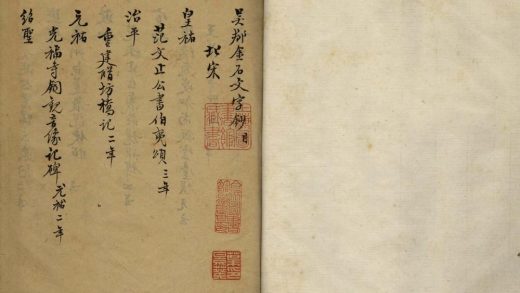 吴郡金石文字鈔目
北宋
皇祐
范文正公書伯夷頌三年
治平
重建醋坊橋記二年
元祐
光福寺銅觀音像記碑元祐二年
紹聖